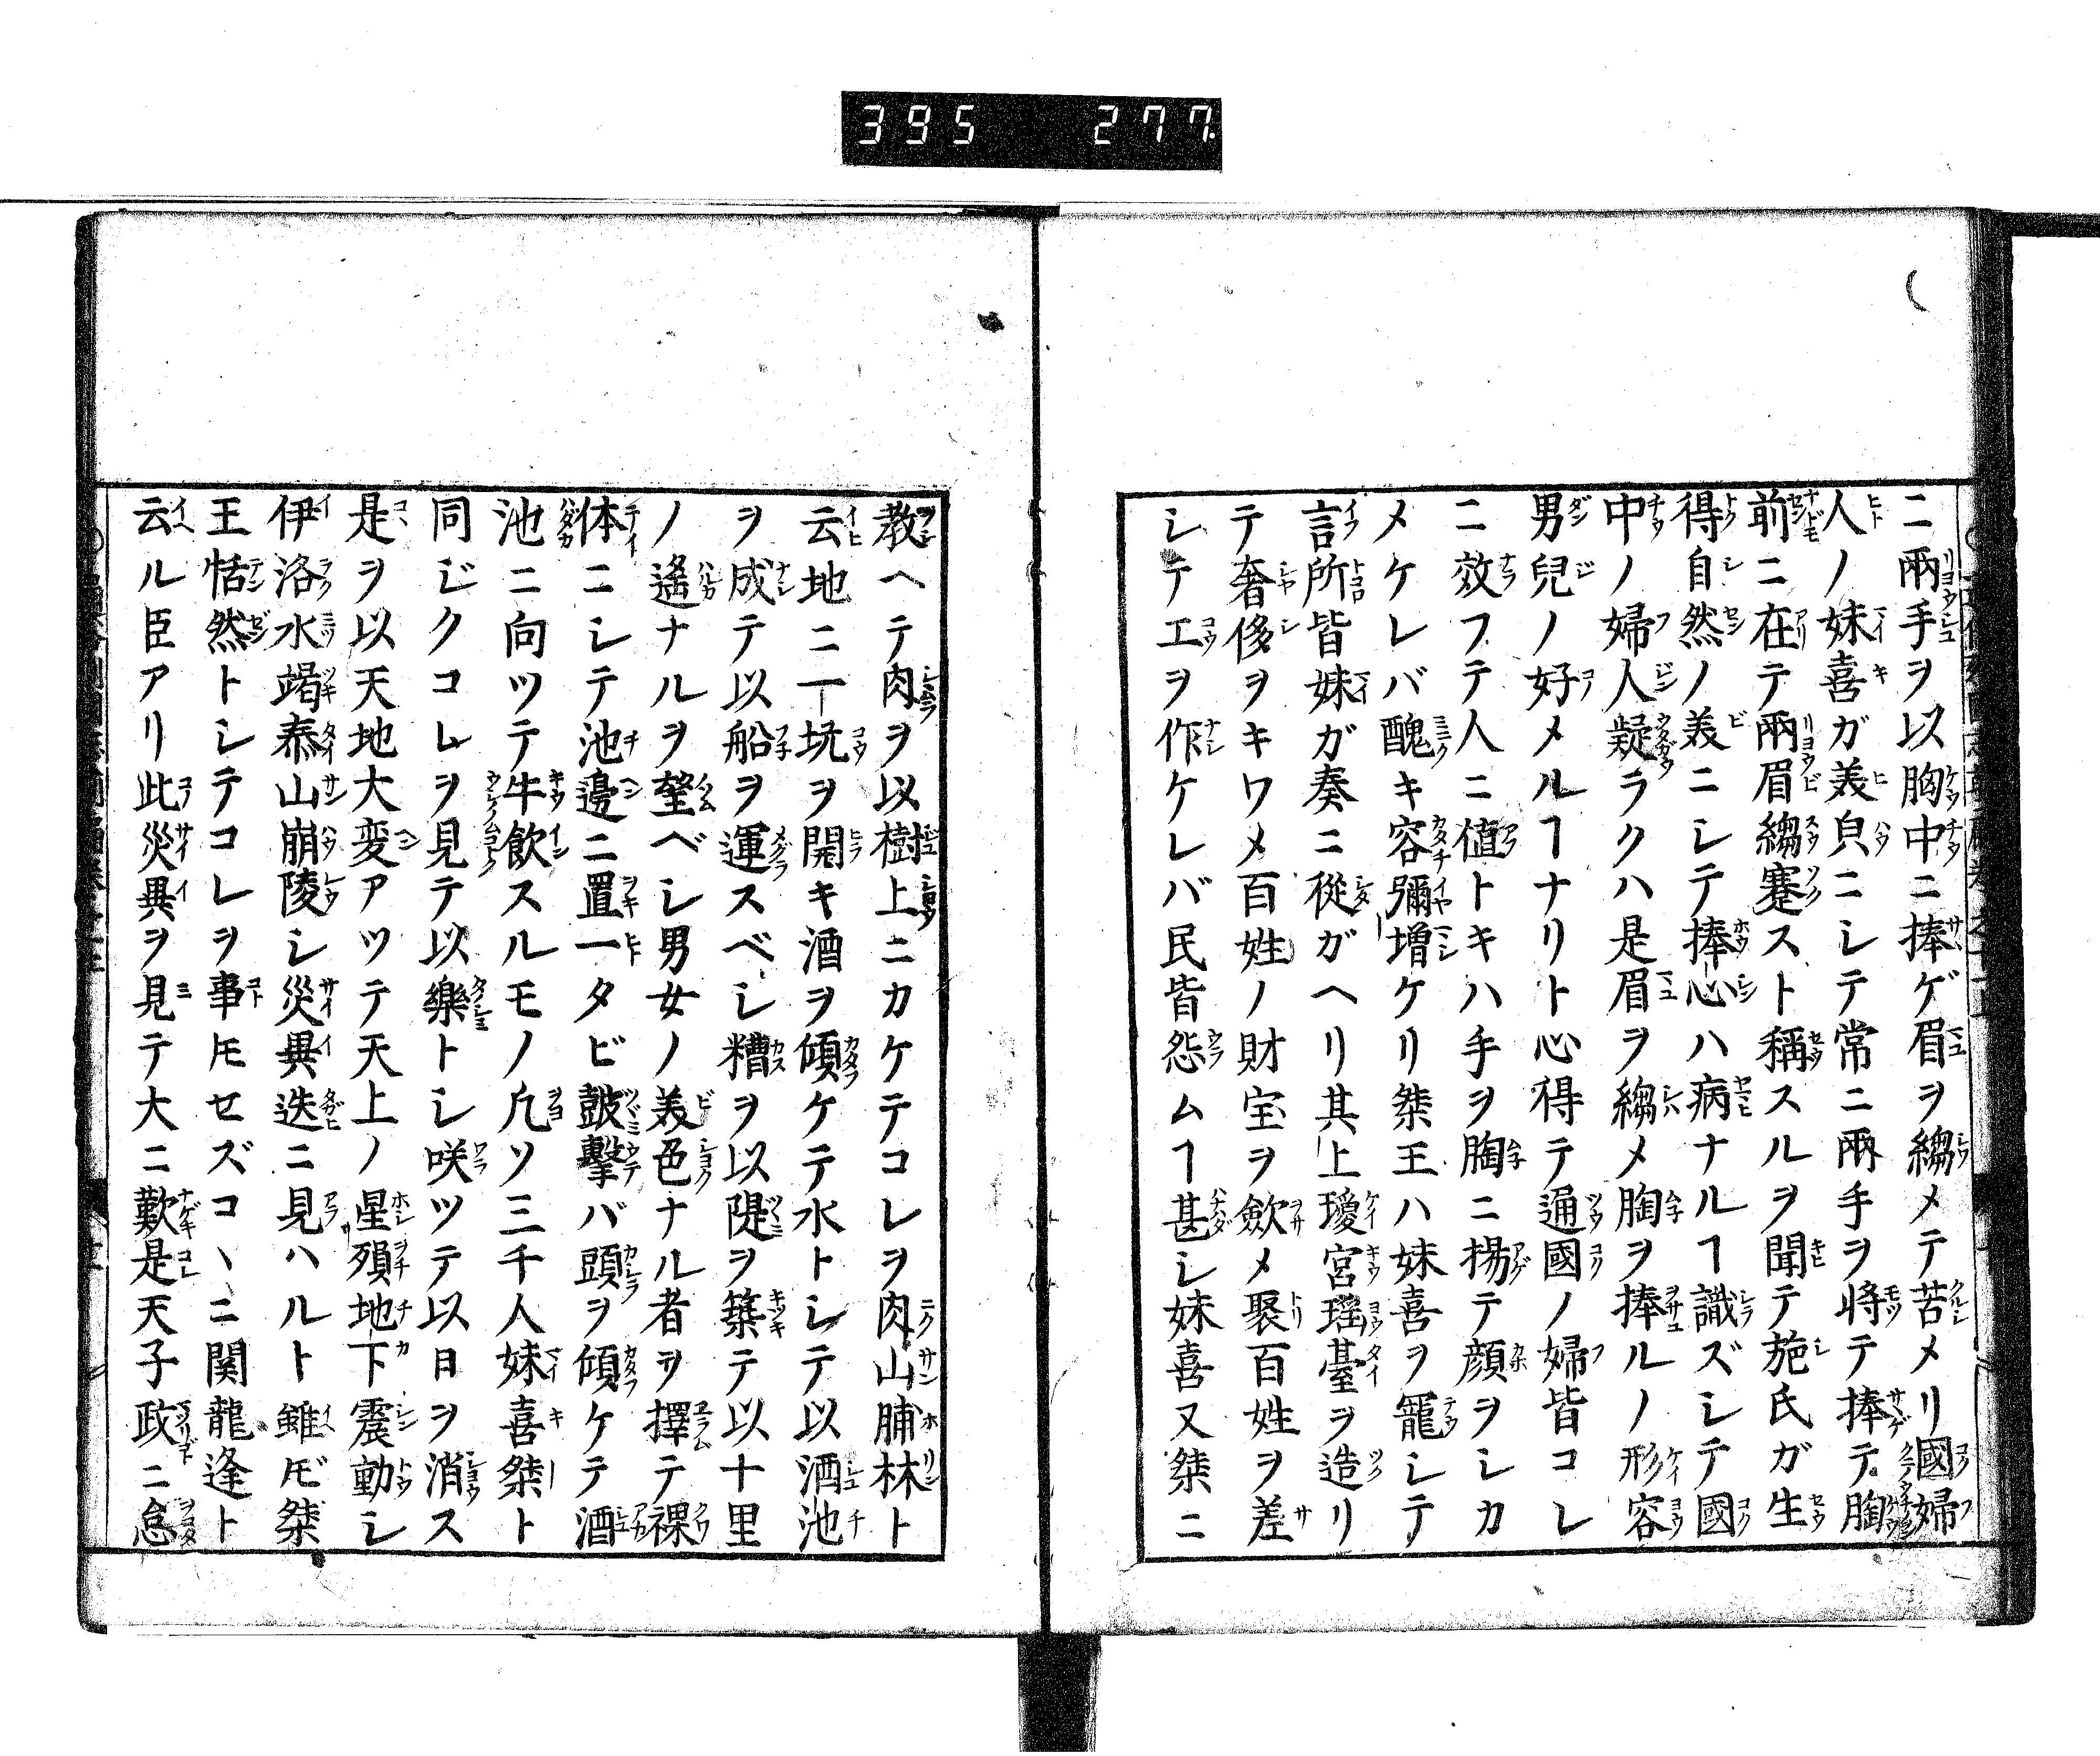 395 277.
ニ兩手ヲ以胸中ニ捧ゲ眉ヲ縐メテ苦メリ國婦
人ノ妹喜ガ美皃ニシテ常ニ兩手ヲ将テ捧テ胸
前ニ在テ兩眉縐蹇スト稱スルヲ聞テ施氏ガ生
得自然ノ美ニシテ捧心ハ病ナルヿ識ズシテ國
中ノ婦人疑ラクハ是眉ヲ縐メ胸ヲ捧ルノ形容
男兒ノ好メルヿナリト心得テ通國ノ婦皆コレ
ニ效フテ人ニ値トキハ手ヲ胸ニ揚テ顔ヲシカ
メケレバ醜キ容彌増ケリ桀王ハ妹喜ヲ寵シテ
言所皆妹ガ奏ニ從ガヘリ其上瓊宮瑶臺ヲ造リ
テ奢侈ヲキワメ百姓ノ財宝ヲ歛メ聚百姓ヲ差
シテエヲ作ケレバ民皆怨ムヿ甚シ妹喜又桀ニ
教ヘテ肉ヲ以樹上ニカケテコレヲ肉山脯林ト
云地ニ一坑ヲ開キ酒ヲ傾ケテ水トシテ以酒池
ヲ成テ以船ヲ運スベシ糟ヲ以隄ヲ築テ以十里
ノ遙ナルヲ望ベシ男女ノ美色ナル者ヲ擇テ裸
体ニシテ池邊ニ置一タビ鼓擊バ頭ヲ傾ケテ酒
池ニ向ツテ牛飲スルモノ凢ソ三千人妹喜桀ト
同じクコレヲ見テ以樂トシ咲ツテ以日ヲ消ス
是ヲ以天地大変アツテ天上ノ星殞地下震動シ
伊洛水竭泰山崩陵シ災異迭ニ見ハルト雖ㇺ桀
王恬然トシテコレヲ事ㇳモセズコヽニ関龍逢ト
云ル臣アリ此災異ヲ見テ大ニ歎是天子政ニ怠